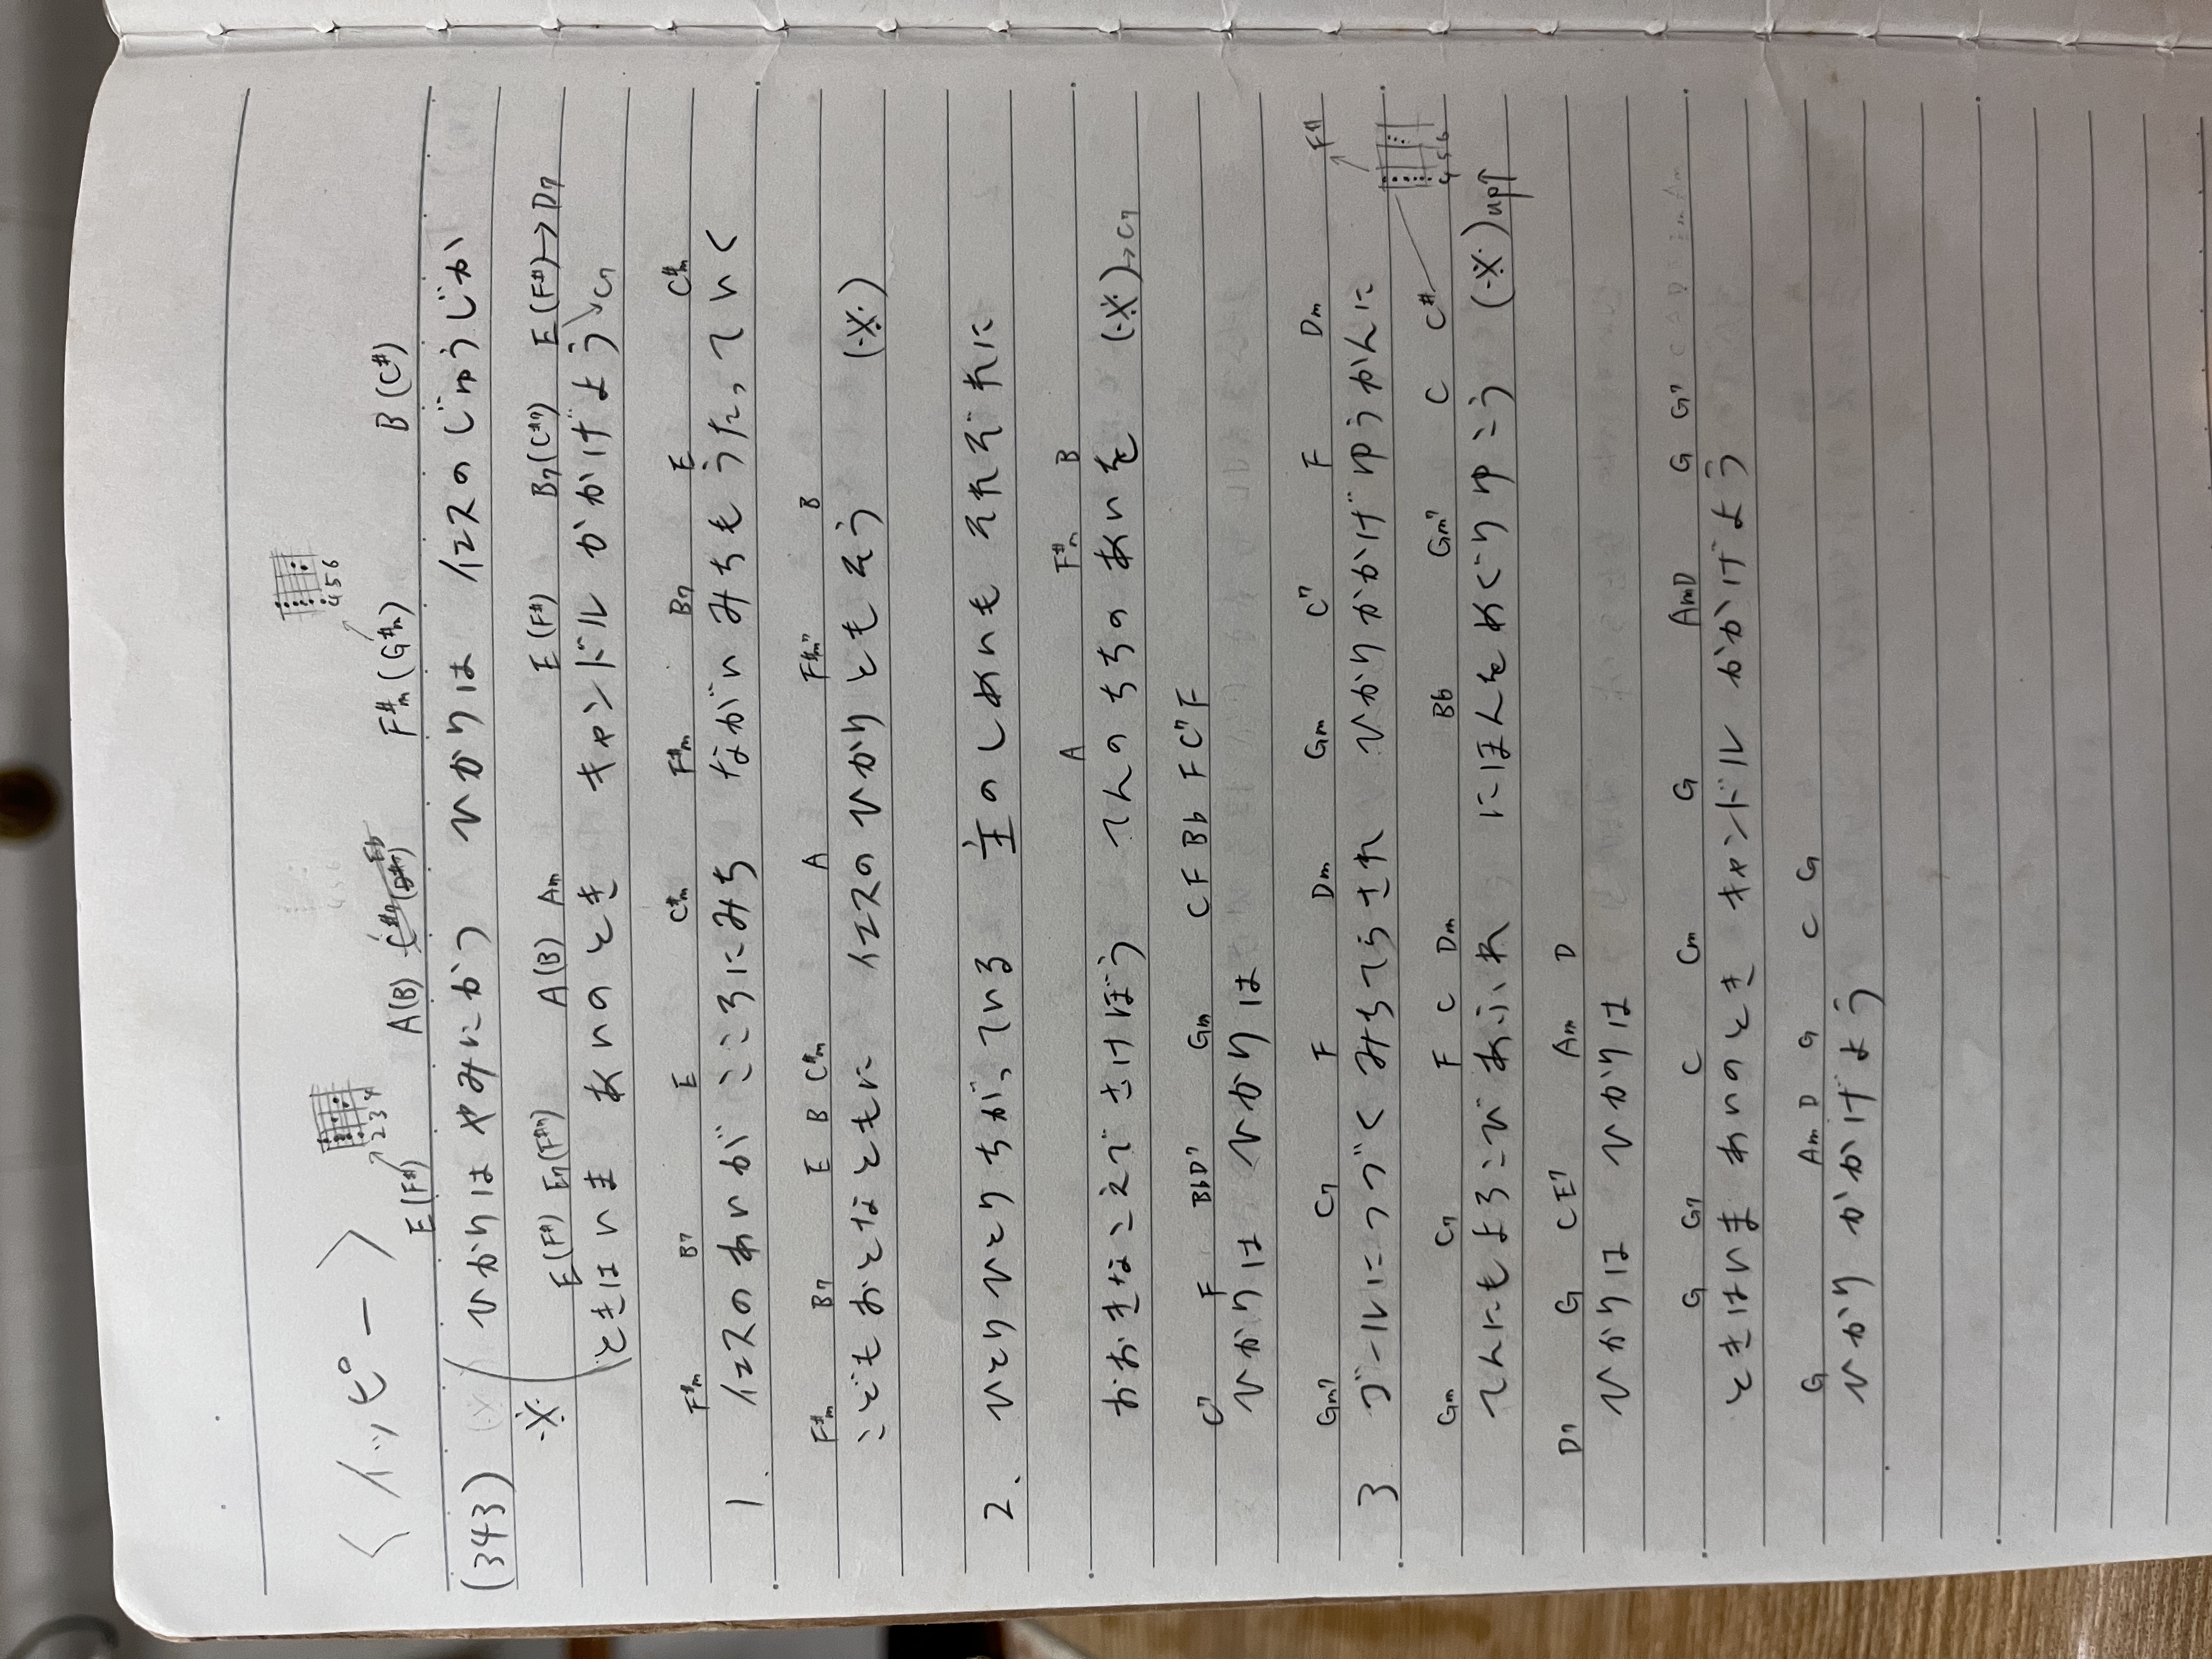 〈イッピー〉
E(F#) A(B) F#m(G#m) B(C#)
(343) ひかりは やみにかつ ひかりは イエスのじゅうじか
E(F#) E7(F#7) A(B) Am E(F#) B7(C#7) E(F#)→D7
※ ときはいま あいのとき キャンドル かかげよう→C7
F#m B7 E C#m F#m B7 E C#m
1. イエスのあいが こころにみち ながい みちも うたっていく
F#m B7 E B C#m A F#m7 B
こどもおとなともに イエスのひかりともそう (※)
2. ひとりひとりちがっている 主のしめいも それぞれに
A F#m B
おおきなこえで さけぼう てんのちちの あいを (※)→C7
C7 F BbD7 Gm C F Bb F C7 F
ひかりは ひかりは
Gm7 C7 F Dm Gm C7 F Dm F#
3 ゴールにつづく みちてらされ ひかりかかげ ゆうかんに
Gm C7 F C Dm Bb Gm7 C C#
てんにもよろこび あふれ にほんをめぐりゆこう (※)up↑
D7 G CE7 Am D
ひかりは ひかりは
G G7 C Cm G AmD G G7
ときはいま あいのとき キャンドル かかげよう
G Am D G C G
ひかり かかげよう